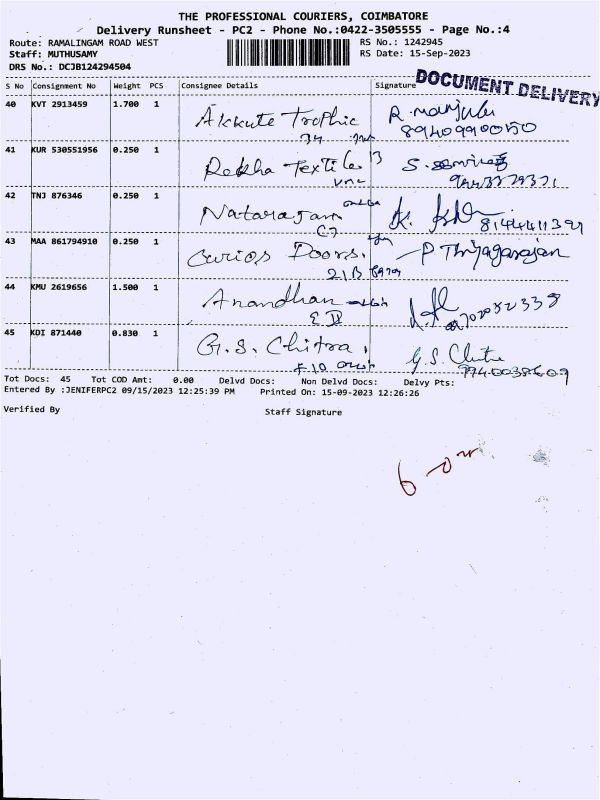 THE PROFESSIONAL COURIERS, COIMBATORE
Delivery Runsheet - PC2 - Phone No.:0422-3505555 - Page No.:4
Route: RAMALINGAM ROAD WEST RS No.: 1242945
Staff: MUTHUSAMY RS Date: 15-Sep-2023
DRS No.: DCJB124294504
DOCUMENT DELIVERY
S No Consignment No Weight PCS Consignee Details Signature
40 KVT 2913459 1.700 1 Akkute Trophic R. manjula
34 8940990050
41 KUR 530551956 0.250 1 Rekha Textile
42 TNJ 876346 0.250 1 Natarajan
C7 8144411391
43 MAA 861794910 0.250 1 Curios Doors. P Thiyagarajan
21B
44 KMU 2619656 1.500 1 Anandhan
45 KDI 871440 0.830 1 G.S. Chitra, G.S. Chitra
F10 9940038609
Tot Docs: 45 Tot COD Amt: 0.00 Delvd Docs: Non Delvd Docs: Delvy Pts:
Entered By :JENIFERPC2 09/15/2023 12:25:39 PM Printed On: 15-09-2023 12:26:26
Verified By Staff Signature